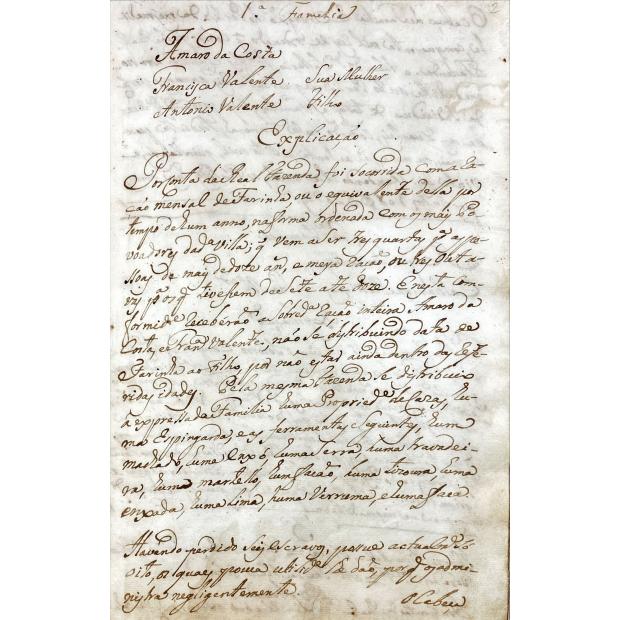 1.ª Familia
2
Amaro da Costa
Francisca Valente Sua Mulher
Antonio Valente Filho
Explicação
Por conta da Real Fazenda foi socorrida com a ra-
ção mensal de Farinha, ou o equivalente della por
tempo de hum anno, na forma ordenada com os mais Po-
voadores da d.ª Villa; q̃ vem a ser tres quartas p.ª as pe-
ssoas de mais de doze an.s, e meya ração, ou tres outa-
vas p.ª os q̃ tivessem de sete athe doze. E nesta con-
formid.e receberão a sobred.ª ração inteira Amaro da
Costa, e Fran.ca Valente, não se distribuindo data de
Farinha ao Filho, por não estar ainda dentro das refe-
ridas idades. Pela mesma Fazenda se distribuio
a expressada Familia huma Propried.e de Cazas, hu-
ma Espingarda, e as ferramentas seguintes, hum
machado, huma enxó, huma serra, huma travadei-
ra, hum martello, hum facão, huma tizoura, huma
enxada, huma lima, huma verruma, e huma faca.
Havendo perdido seis escravos, possue actualm.e só
oito, os quaes pouca utilid.e lhe dão, por q̃ os admi-
nistra negligentemente. o Cabeça